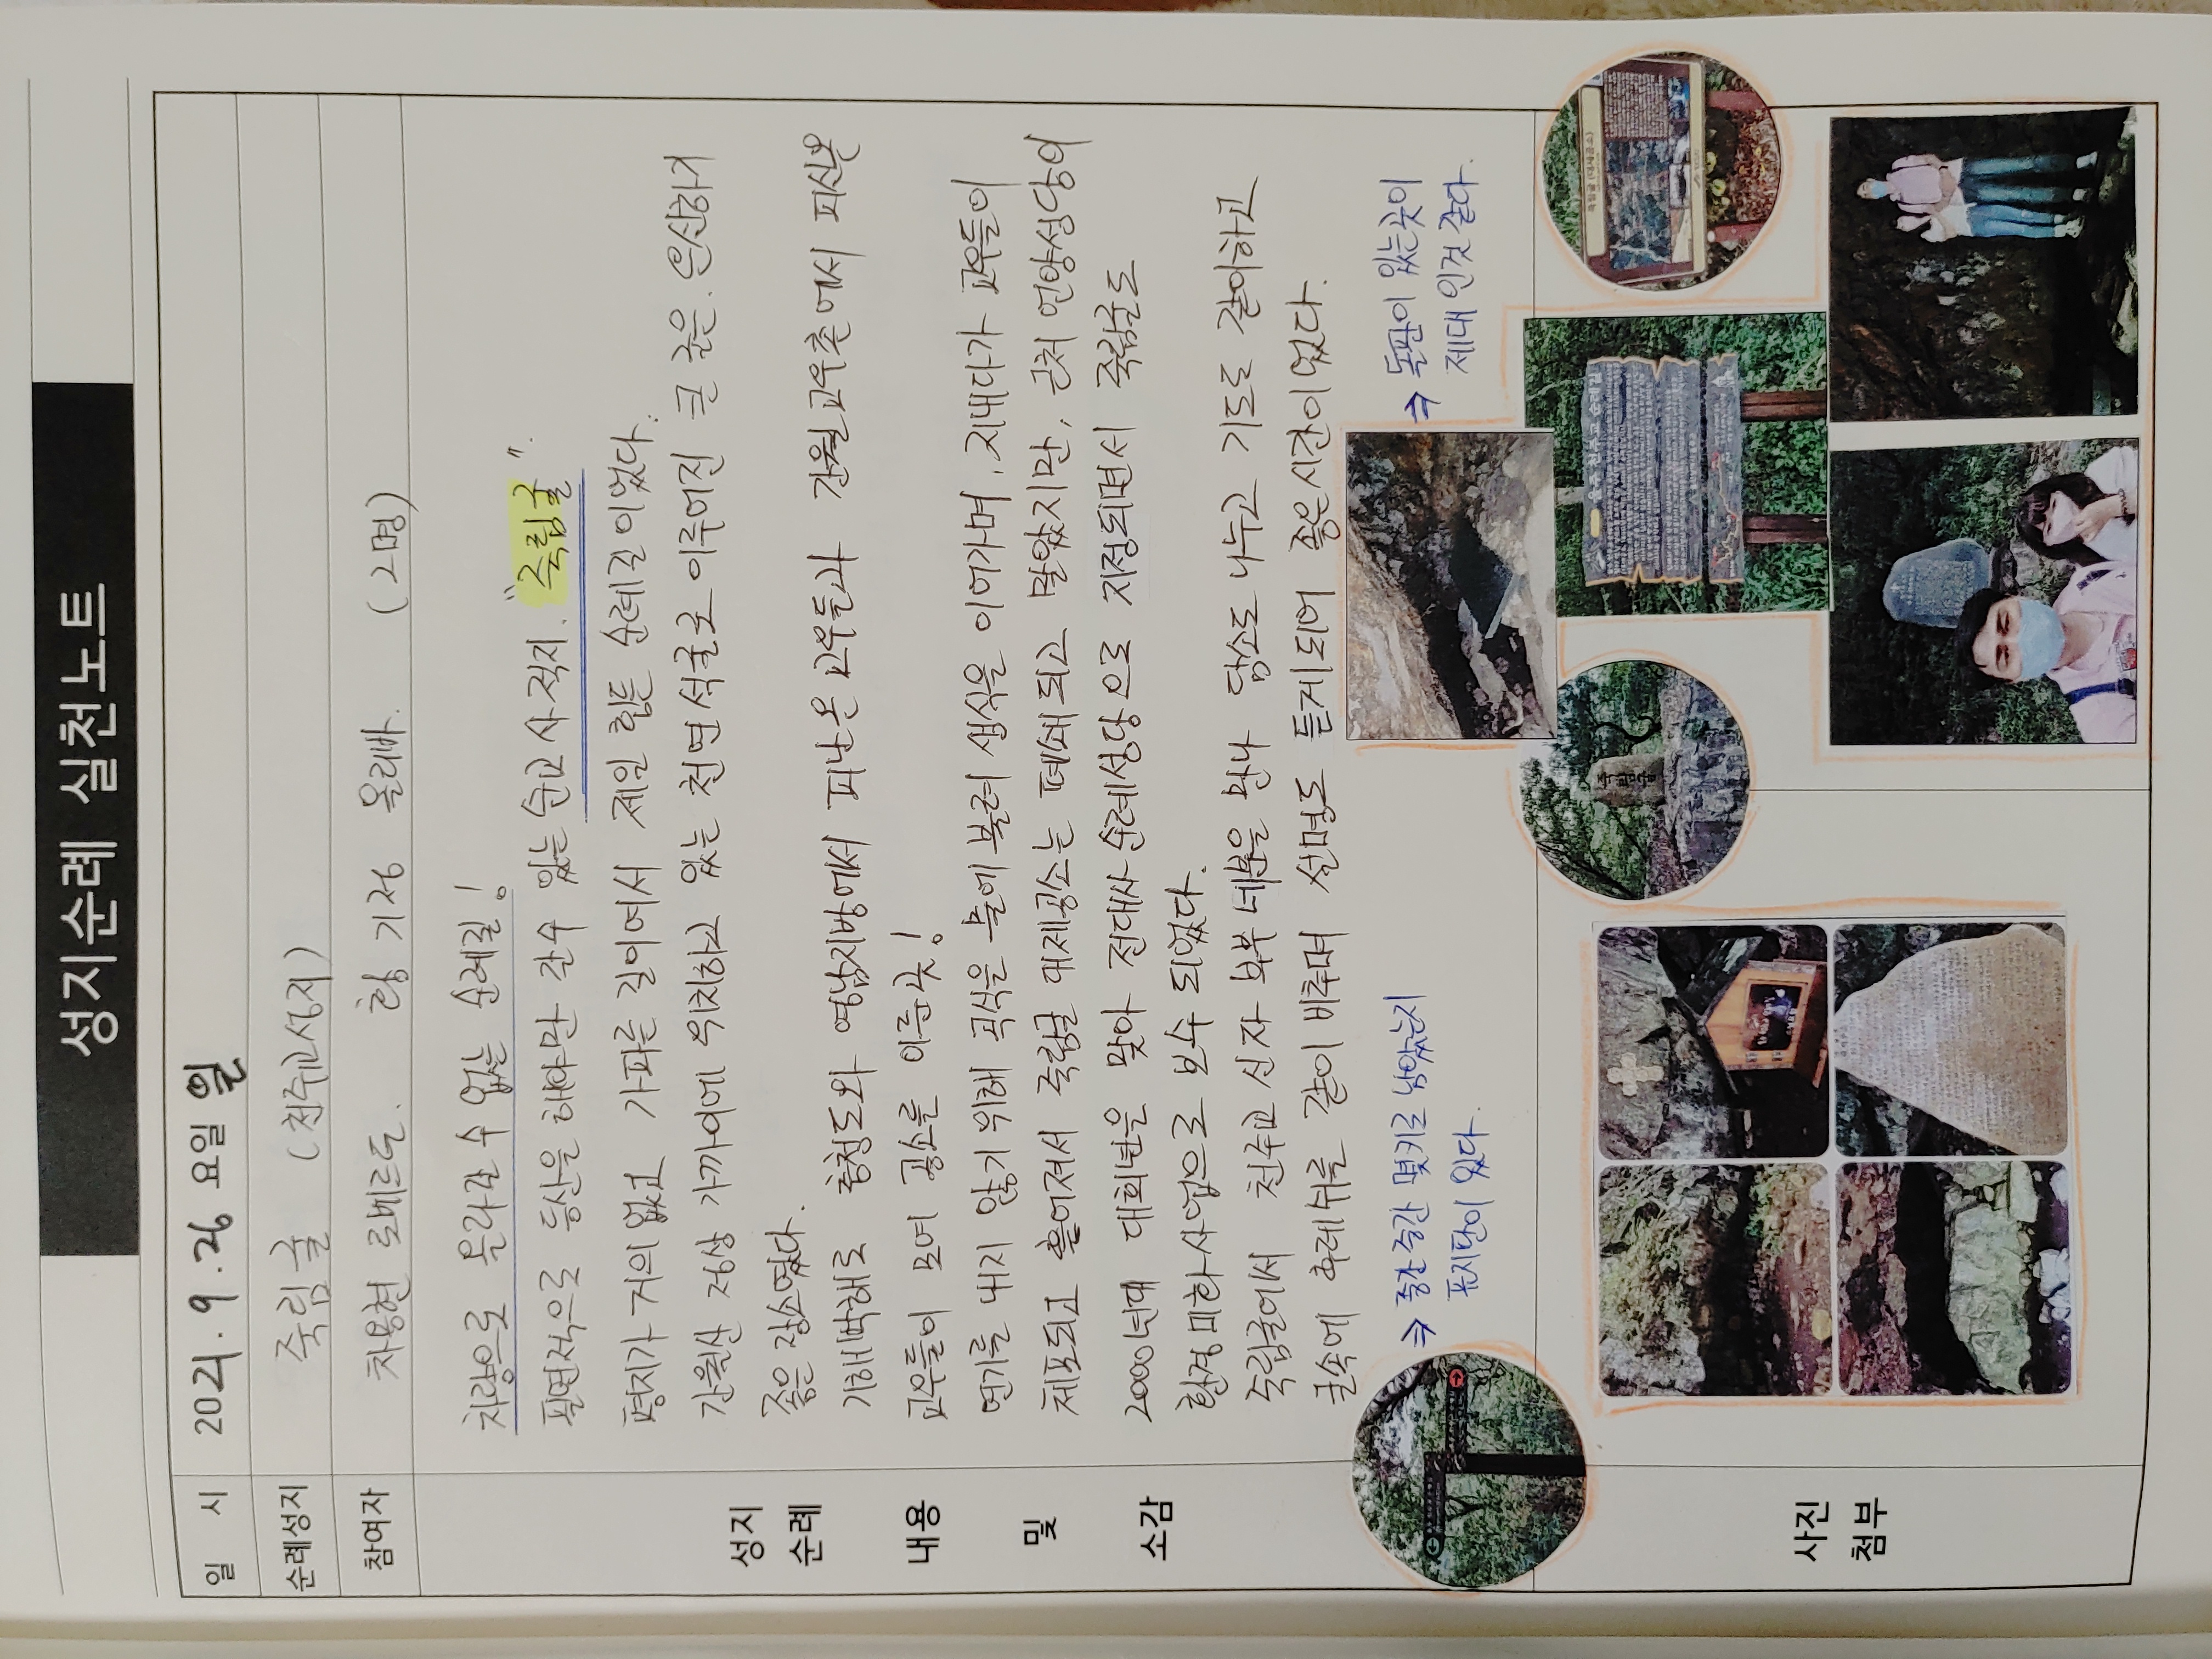 성지순례 실천노트
일 시 2021. 9. 26 요일 일
순례성지 죽림굴 (천주교성지)
참여자 차용현 로베르또. 황기정 올리바. (2명)
성지
순례
내용
및
소감
차량으로 올라갈 수 없는 순례길!
필연적으로 등산을 해야만 갈수 있는 순교사적지. "죽림굴".
평지가 거의 없고 가파른 길이여서 제일 힘든 순례길이었다.
간월산 정상 가까이에 위치하고 있는 천연석굴로 이루어진 큰 굴은 은신하기
좋은 장소였다.
기해박해로 충청도와 영남지방에서 피난온 교우들과 간월교우촌에서 피신온
교우들이 모여 공소를 이룬곳!
연기를 내지 않기 위해 곡식을 물에 불려 생식을 이어가며, 지내다가 교우들이
체포되고 흩어져서 죽림굴 대재공소는 폐쇄되고 말았지만, 근처 언양성당의
2000년대 대희년을 맞아 전대사 순례성당으로 지정되면서 죽림굴도
환경미화사업으로 보수 되었다.
죽림굴에서 천주교 신자 부부 네분을 만나 담소도 나누고 기도로 같이하고
굴속에 후레쉬를 같이 비추며 설명도 듣게되어 좋은시간이었다.
⇒ 중간중간 몇키로 남았는지
표지판이 있다.
⇒ 돌판이 있는곳이
제대인것 같다.
사진
첨부
죽림굴
죽림굴(대재공소)